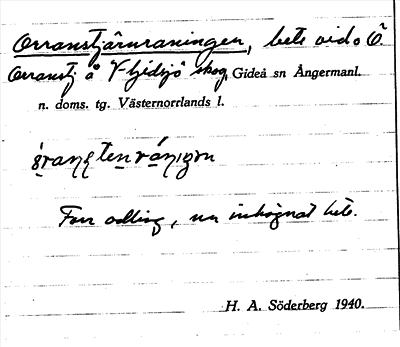 Orranstjärnraningen, bete vid Ö.
Orranstj å V-Gidsjö skog, Gideå sn Ångermanl.
n. doms. tg. Västernorrlands l.
Forr odling, nu inhägnat bete.
H. A. Söderberg 1940.